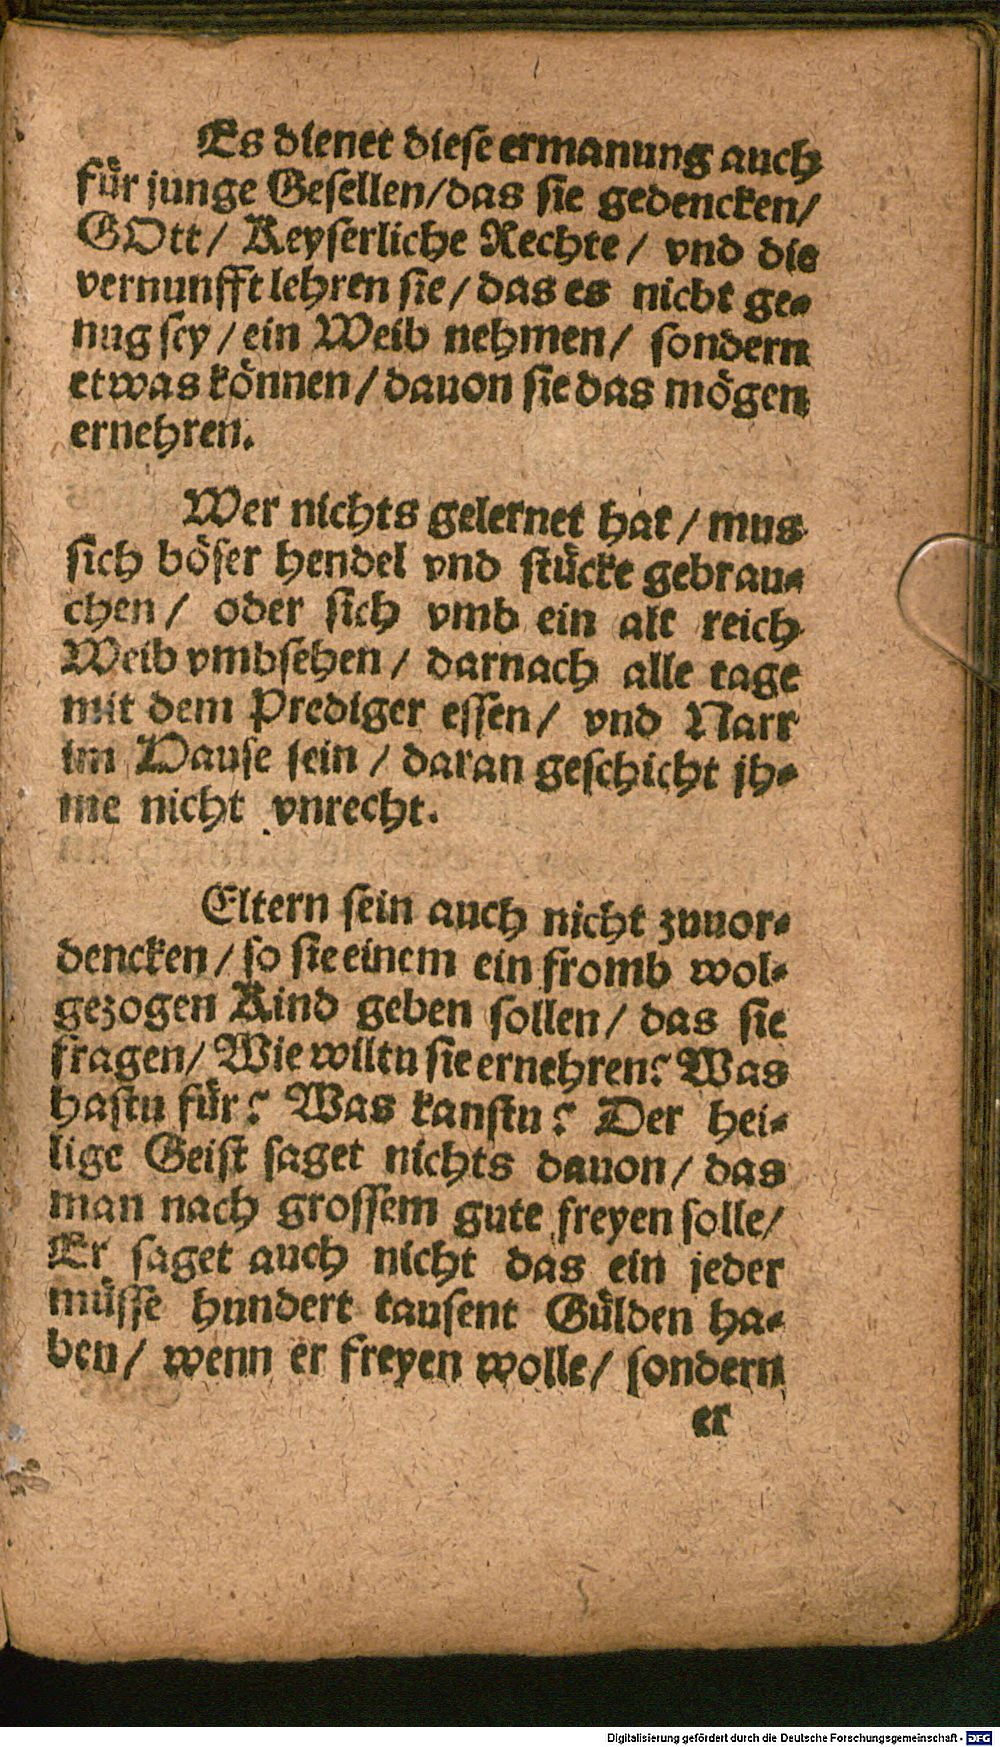 Es dienet diese ermanung auch
für junge Gesellen/das sie gedencken/
GOtt/ Keyserliche Rechte/ vnd die
vernunfft lehren sie/ das es nicht ge-
nug sey/ein Weib nehmen/ sondern
etwas können/dauon sie das mögen
ernehren.
Wer nichts gelernet hat/mus
sich böser hendel vnd stücke gebrau-
chen/ oder sich vmb ein alt reich
Weib vmbsehen/ darnach alle tage
mit dem Prediger essen/ vnd Narr
im Hause sein/daran geschicht jh-
me nicht vnrecht.
Eltern sein auch nicht zuuor-
dencken/so sie einem ein fromb wol-
gezogen Kind geben sollen/ das sie
fragen/Wie wiltu sie ernehren? Was
hastu für? Was kanstu? Der hei-
lige Geist saget nichts dauon/das
man nach grossem gute freyen solle/
Er saget auch nicht das ein jeder
müsse hundert tausent Gülden ha-
ben/ wenn er freyen wolle/ sondern
er
Digitalisierung gefördert durch die Deutsche Forschungsgemeinschaft - DFG